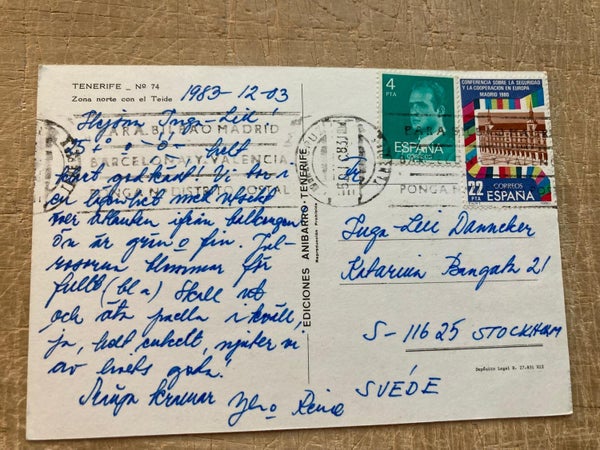 TENERIFE _ Nº 74
Zona norte con el Teide
1983-12-03
Hejsan Inga-Lill
helt
Vi bor i
en lägenhet med utsikt
över
ön är grön o fin. Jul-
rosorna blommar för
fullt (bl a) Skall ut
och äta paella i kväll,
ja, helt enkelt, njuter vi
av livets goda!
Många kramar
PARA BILBAO MADRID
BARCELONA Y VALENCIA
PONGA Nº DISTRITO POSTAL
EDICIONES ANIBARRO-TENERIFE
Reproducción Prohibida
4
PTA
ESPAÑA
CORREOS
CONFERENCIA SOBRE LA SEGURIDAD
Y LA COOPERACION EN EUROPA
MADRID 1980
22
PTA
CORREOS
ESPAÑA
PARA
PONGA
Fr.
Inga-Lill Dannecker
Katarina Bangata 21
S-116 25 STOCKHOLM
SUÉDE
Depósito Legal B. 27.031 XIX